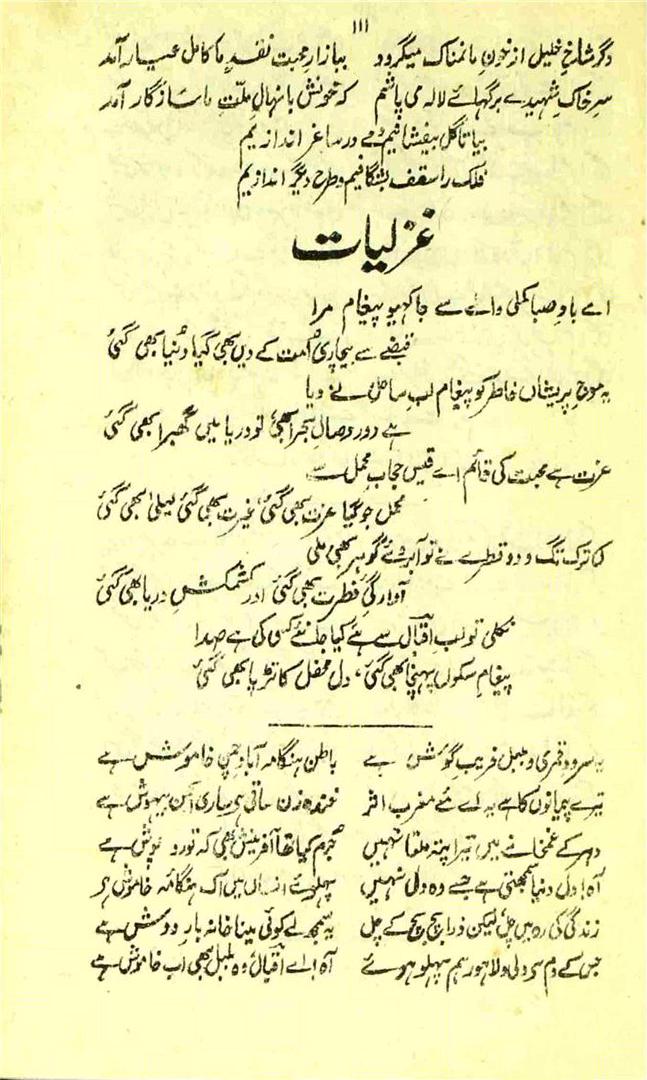 ۱۱۱
دگر شاخِ خلیل از خونِ ما نمناک میگردد ببازارِ محبت نقدِ ما کامل عیار آمد
سرِ خاکِ شہیدے برگہائے لالہ می پاشم کہ خونش با نہالِ ملّتِ ما سازگار آمد
بیا تا گل بیفشانیم و مے در ساغر اندازیم
فلک را سقف بشگافیم و طرح دیگر اندازیم
غزلیات
اے بادِ صبا کملی والے سے جا کہیو پیغام مرا
قبضے سے بیچاری اُمت کے دیں بھی گیا دُنیا بھی گئی
یہ موجِ پریشاں خاطر کو پیغام لبِ ساحل نے دیا
ہے دور وصالِ بحر ابھی، تو دریا میں گھبرا بھی گئی
عزت ہے محبت کی قائم اے قیس حجابِ محمل سے
محمل جو گیا عزت بھی گئی، غیرت بھی گئی لیلیٰ بھی گئی
کی ترک تگ و دو قطرے نے تو آبروئے گوہر بھی ملی
آوارگیِ فطرت بھی گئی اور کشمکشِ دریا بھی گئی
نکلی تو لبِ اقبالؔ سے ہے کیا جانئے کس کی ہے صدا
پیغامِ سکوں پہنچا بھی گئی، دل محفل کا تڑپا بھی گئی
یہ سرودِ قمری و بلبل فریبِ گوش ہے باطن ہنگامہ آباد چمن خاموش ہے
تیرے پیمانوں کا ہے یہ اے مئے مغرب اثر خندہ زن ساقی ہے ساری انجمن بیہوش ہے
دہر کے غمخانے میں تیرا پتہ ملتا نہیں جرم کیا تھا آفرینش بھی کہ تو روپوش ہے
آہ! دل دنیا سمجھتی ہے جسے وہ دل نہیں پہلوئے انساں میں اک ہنگامۂ خاموش ہے
زندگی کی رہ میں چل لیکن ذرا بچ بچ کے چل یہ سمجھ لے کوئی مینا خانہ بارِ دوش ہے
جس کے دم سے دلی و لاہور ہم پہلو ہوئے آہ! اے اقبالؔ وہ بلبل بھی اب خاموش ہے